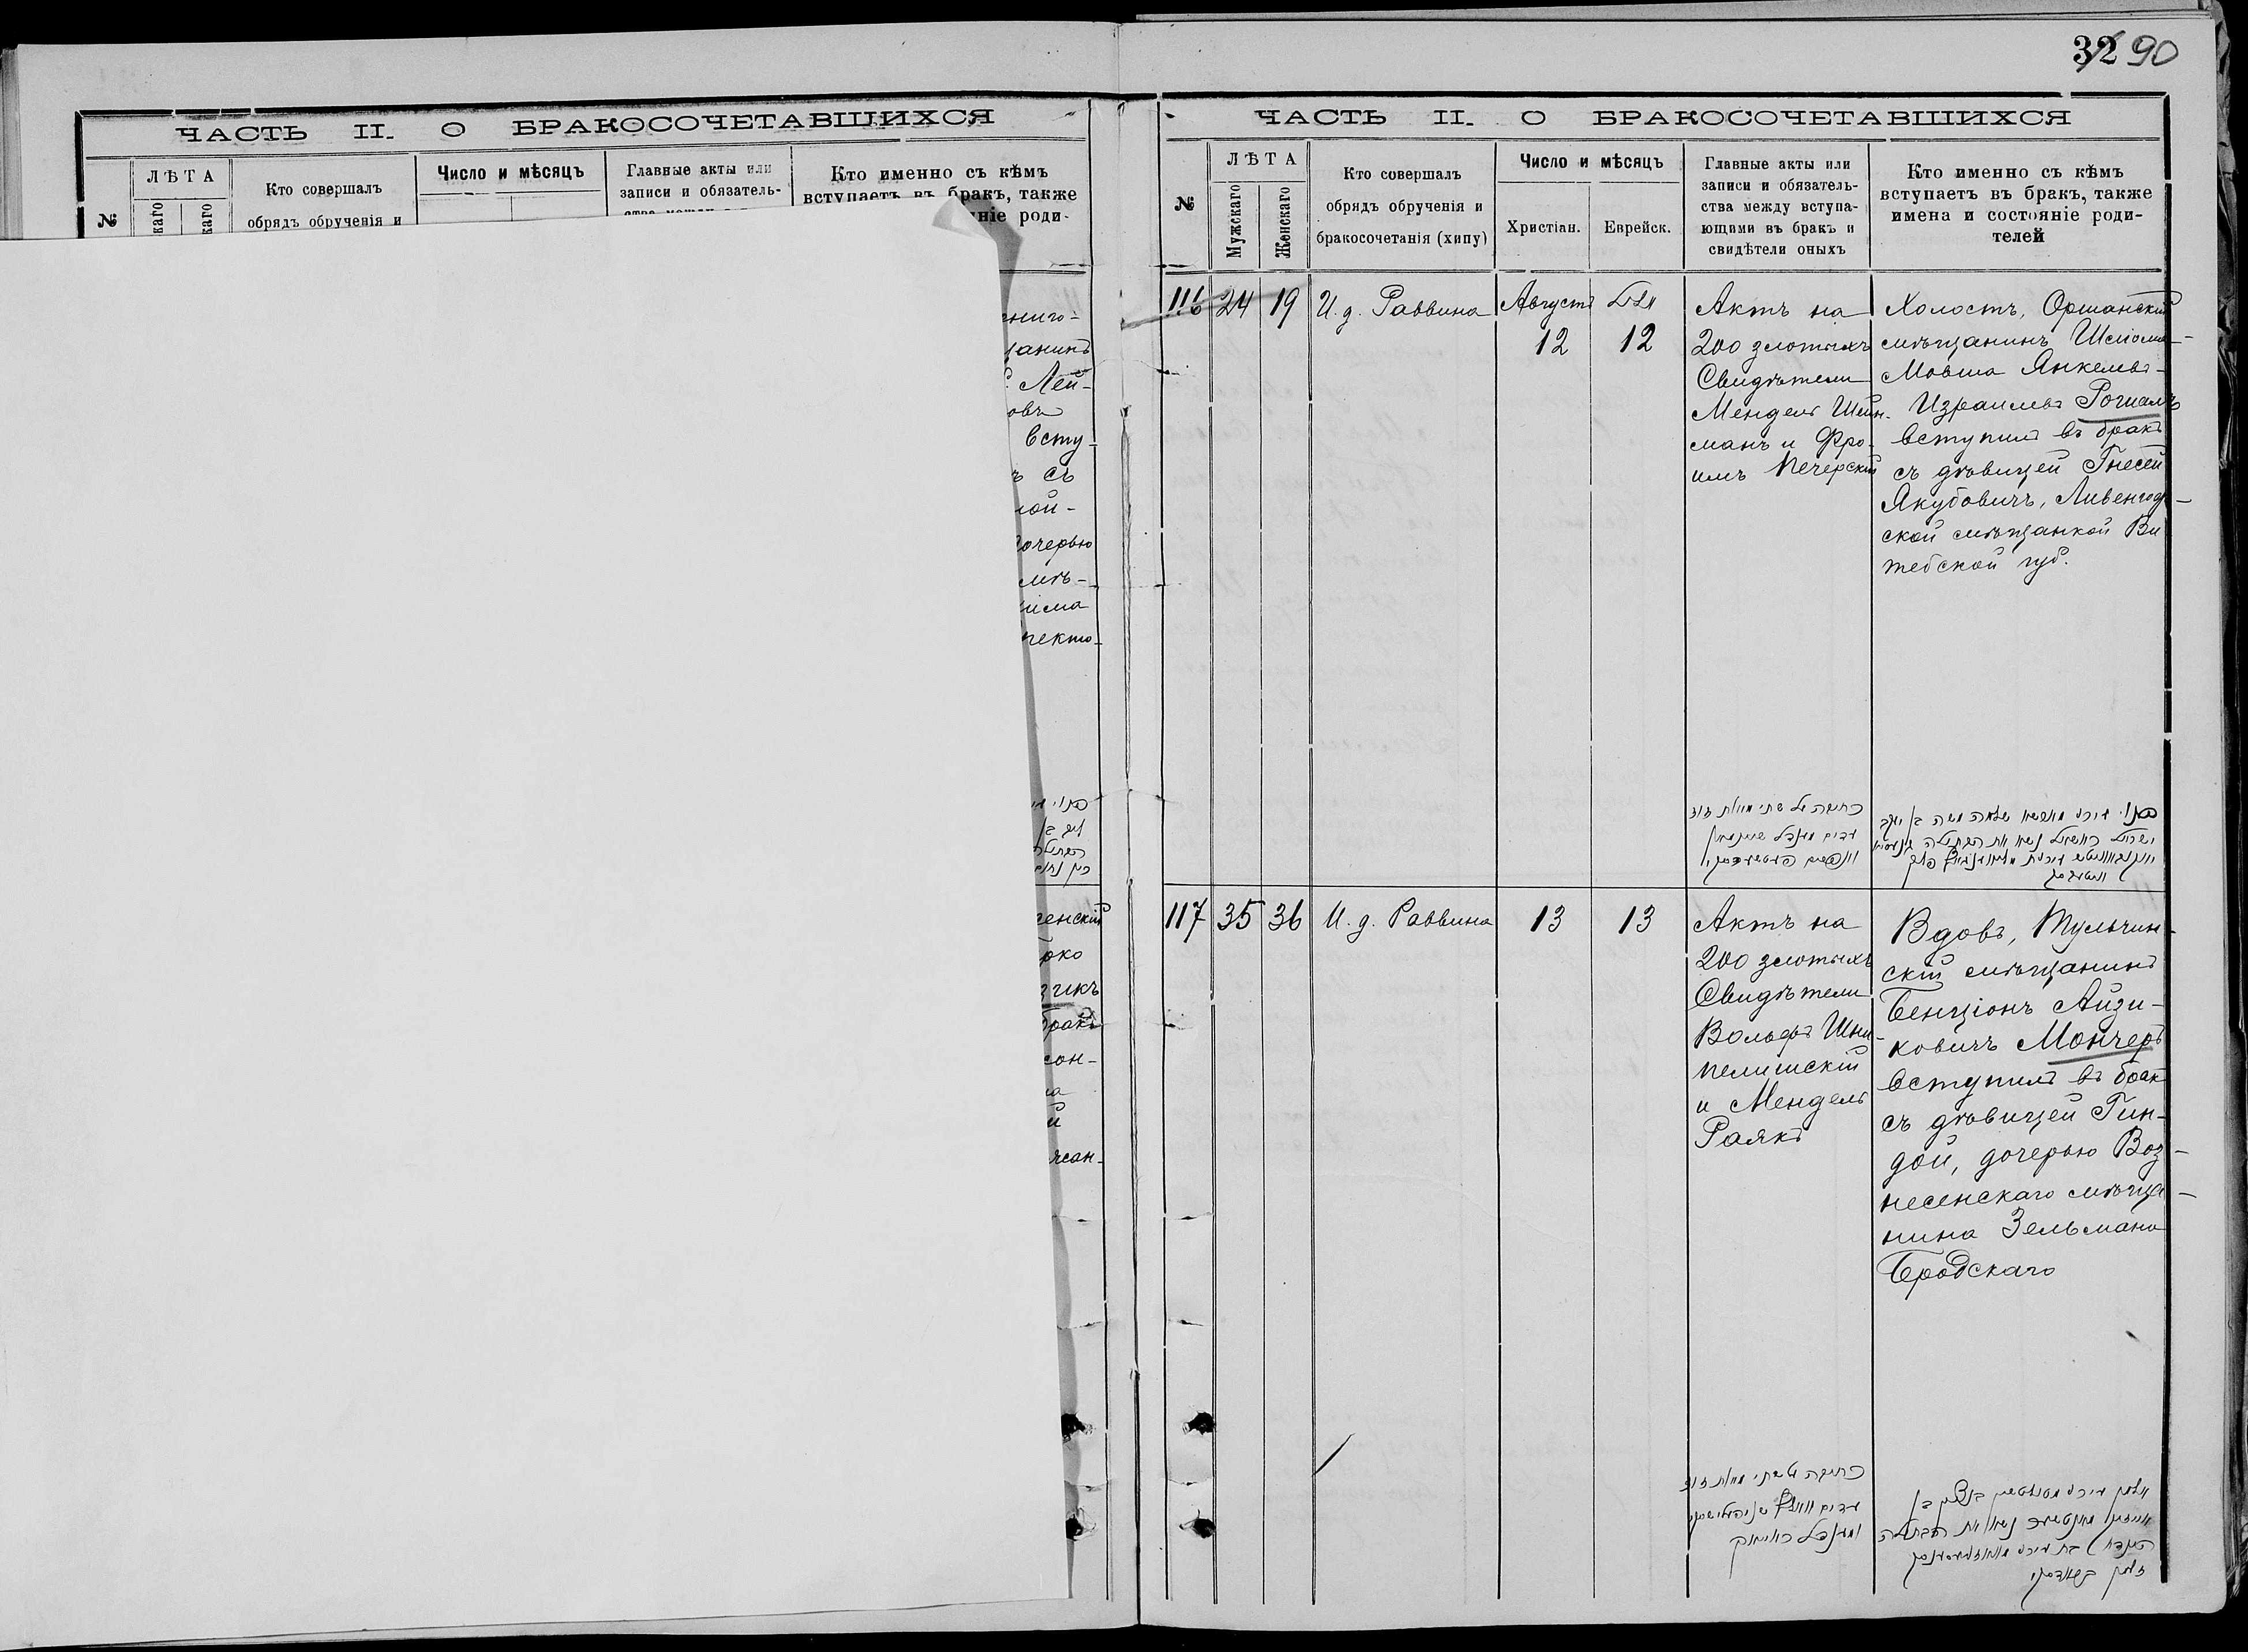 32 90
ЧАСТЬ II. О БРАКОСОЧЕТАВШИХСЯ
№
ЛѢТА
каго
каго
Кто совершалъ
обрядъ обрученія и
Число и мѣсяцъ
Главные акты или
записи и обязатель-
Кто именно съ кѣмъ
вступаетъ въ бракъ, также
ніе роди-
ниго-
анинъ
Лей-
овъ
всту-
съ
ной-
очерью
мѣ-
има
некто-
генскій
рко
бракъ
сон-
на
й
ксан-
ЧАСТЬ II. О БРАКОСОЧЕТАВШИХСЯ
№
ЛѢТА
Мужскаго
Женскаго
Кто совершалъ
обрядъ обрученія и
бракосочетанія (хипу)
Число и мѣсяцъ
Христіан.
Еврейск.
Главные акты или
записи и обязатель-
ства между вступа-
ющими въ бракъ и
свидѣтели оныхъ
Кто именно съ кѣмъ
вступаетъ въ бракъ, также
имена и состояніе роди-
телей
116 24 19 И. д. Раввина Августъ
12 12
Актъ на
200 злотыхъ
Свидѣтели
Мендель Шейн-
манъ и Фро-
имъ Печерскій
Холостъ, Оршанскій
мѣщанинъ Шліома-
Мовша Янкель-
Израилевъ Рогиалъ
вступилъ въ бракъ
съ дѣвицей Гнесей
Якубовичъ, Ливенгоф-
ской мѣщанкой Ви
тебской губ.
כתובה על שתי מאות זוז
עדים מענדל שיינמאן
117 35 36 И. д. Раввина 13 13
Актъ на
200 злотыхъ
Свидѣтели
Вольфъ Шни-
пелишскій
и Мендель
Раякъ
Вдовъ, Тульчин-
скій мѣщанинъ
Бенціонъ Айзи-
ковичъ Мончеръ
вступилъ въ бракъ
съ дѣвицей Гин-
дой, дочерью Воз-
несенскаго мѣща-
нина Зельмана
Бродскаго